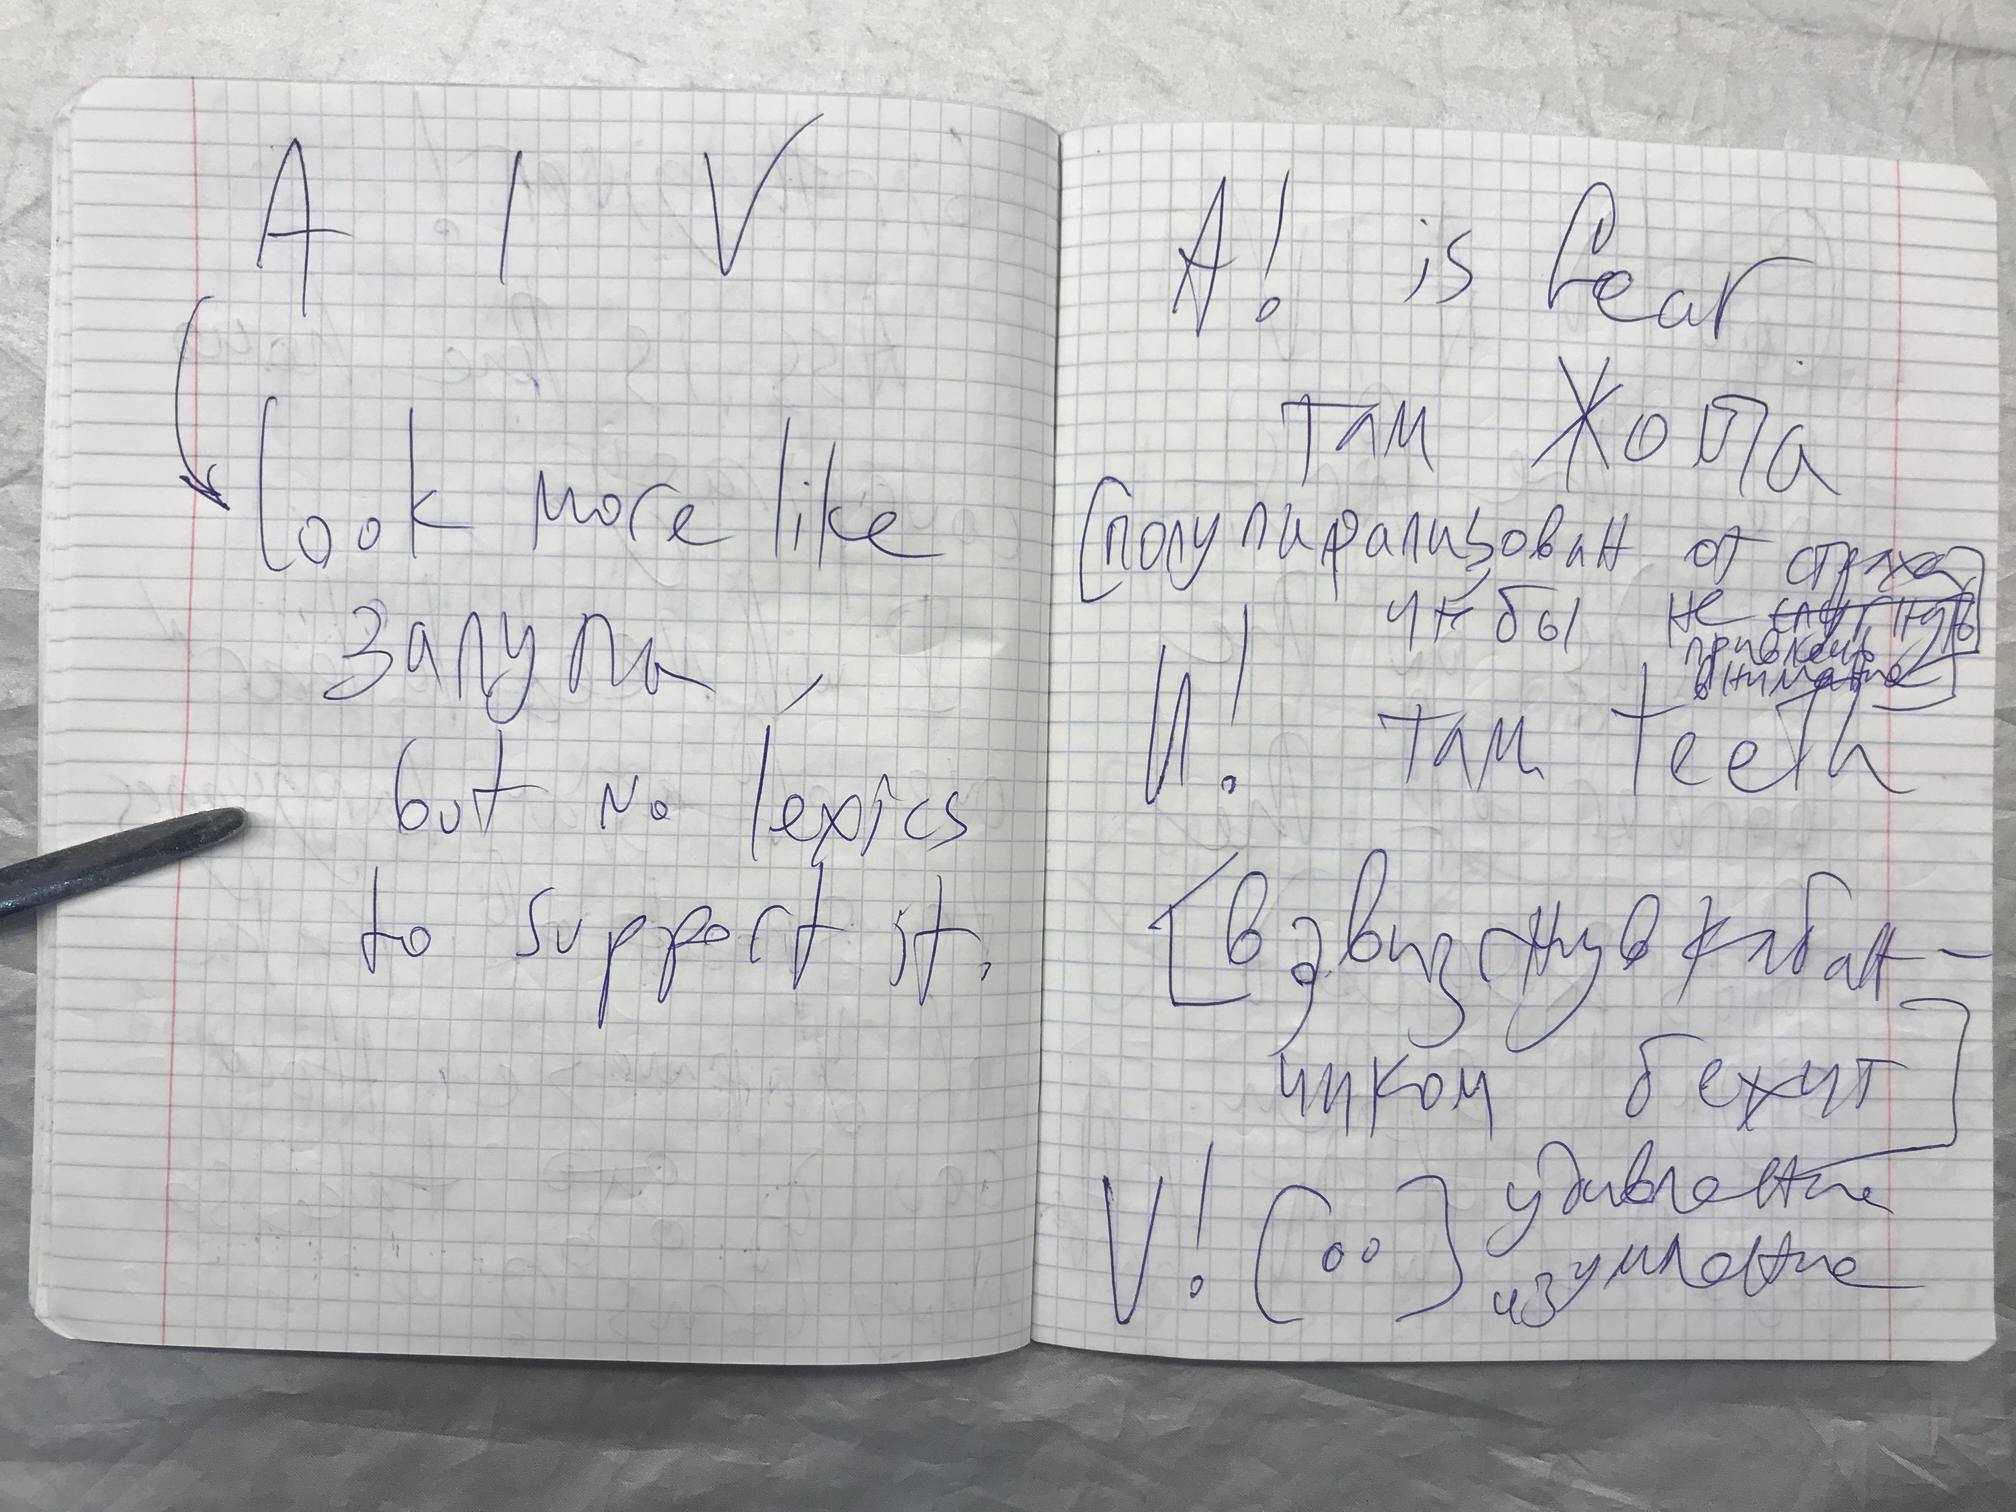 A I V
look more like
залупа,
but no lexics
to support it.
A! is fear
там жопа
[полупарализован от страха
чтобы не
привлечь
внимание]
И! там teeth
[взвизгнув кабан-
чиком бежит]
V! [oo] удивление
изумление